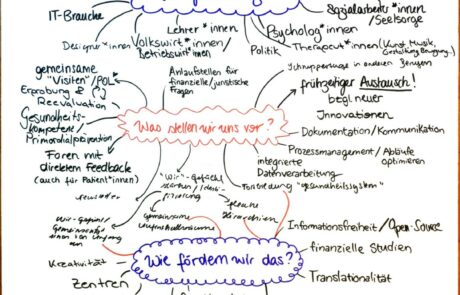 IT-Branche
Sozialarbeiter*innen
/Seelsorge
Lehrer*innen
Psycholog*innen
Designer*innen
Volkswirt*innen/
Betriebswirt*innen
Politik
Therapeut*innen (Kunst, Musik,
gemeinsame
"Visiten"/POL
Anlaufstellen für
finanzielle/juristische
Fragen
Schnuppertage in anderen Berufen
Erprobung &
Reevaluation
frühzeitiger Austausch!
bzgl. neuer
Innovationen
Gesundheits-
kompetenz/
Primordialprävention
Was stellen wir uns vor?
Dokumentation/Kommunikation
Foren mit
direktem Feedback
(auch für Patient*innen)
Prozessmanagement/Abläufe
optimieren
integrierte
Datenverarbeitung
"Wir-Gefühl"
stärken/
Fortbildung "Gesundheitssystem"
flache
Hierarchien
Gemeinsame
Wir-Gefühl/
Informationsfreiheit/Open-Source
Wie fördern wir das?
finanzielle Studien
Kreativität
Translationalität
Zentren